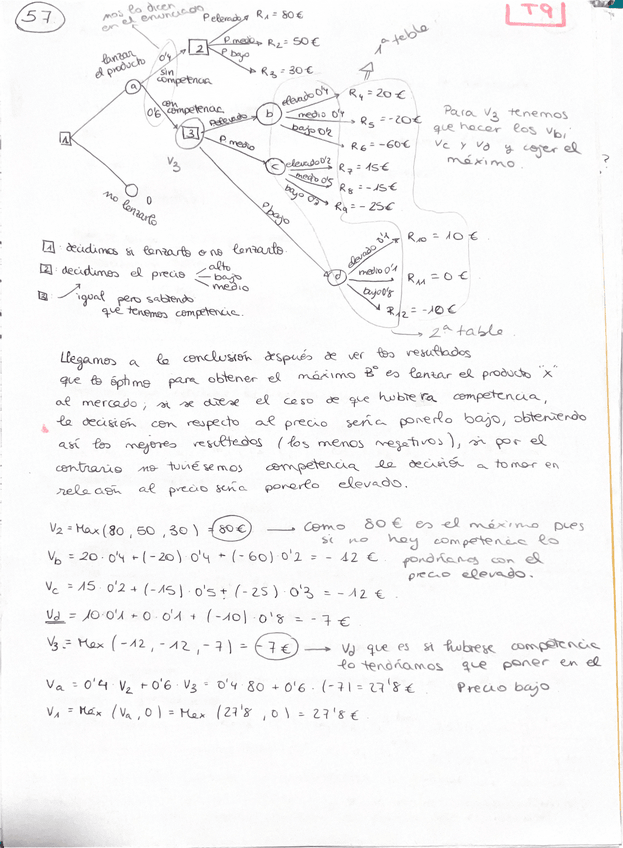 57
T9
nos lo dicen
en el enunciado
P elevado R₁ = 80€
P medio R₂ = 50€
P bajo R₃ = 30€
1ª tabla
lanzar
el producto
0'4
sin
competencia
2
a
0'6
con
competencia
1
3
V₃
P elevado
P medio
P bajo
b
elevado 0'4 R₄ = 20€
medio 0'4 R₅ = -20€
bajo 0'2 R₆ = -60€
c
elevado 0'2 R₇ = 15€
medio 0'5 R₈ = -15€
R₉ = -25€
Para V₃ tenemos
que hacer los Vb,
Vc y Vd y cojer el
máximo.
?
no lanzarlo
0
d
elevado 0'1 R₁₀ = 10€
medio 0'1 R₁₁ = 0€
bajo 0'8 R₁₂ = -10€
2ª tabla.
1 : decidimos si lanzarlo o no lanzarlo.
2 : decidimos el precio alto
bajo
medio
3 igual pero sabiendo
que tenemos competencia.
Llegamos a la conclusión después de ver los resultados
que lo óptimo para obtener el máximo Bº es lanzar el producto "x"
al mercado; si se diese el caso de que hubiera competencia,
la decisión con respecto al precio sería ponerlo bajo, obteniendo
así los mejores resultados (los menos negativos), si por el
contrario no tuviésemos competencia la decisión a tomar en
relación al precio sería ponerlo elevado.
V₂ = Max (80, 50, 30) = 80€ → como 80€ es el máximo pues
si no hay competencia lo
pondríamos con el
precio elevado.
Vb = 20·0'4 + (-20)·0'4 + (-60)·0'2 = -12€.
Vc = 15·0'2 + (-15)·0'5 + (-25)·0'3 = -12€.
Vd = 10·0'1 + 0·0'1 + (-10)·0'8 = -7€
V₃ = Max (-12, -12, -7) = -7€ → Vd que es si hubiese competencia
lo tendríamos que poner en el
Precio bajo
Va = 0'4·V₂ + 0'6·V₃ = 0'4·80 + 0'6·(-7) = 27'8€.
V₁ = Máx (Va, 0) = Max (27'8, 0) = 27'8€.